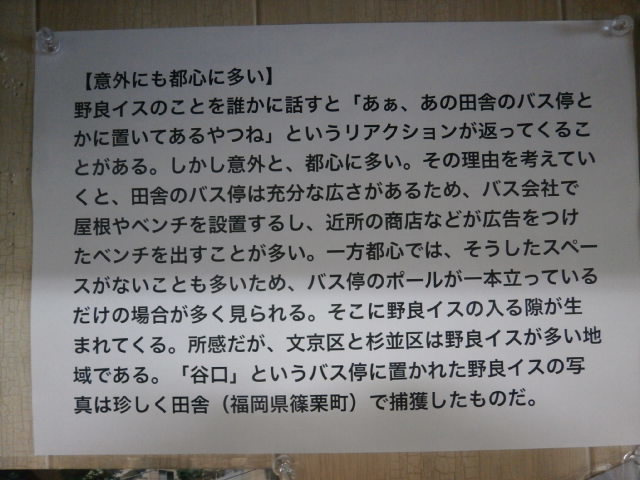 【意外にも都心に多い】
野良イスのことを誰かに話すと「あぁ、あの田舎のバス停と
かに置いてあるやつね」というリアクションが返ってくるこ
とがある。しかし意外と、都心に多い。その理由を考えてい
くと、田舎のバス停は充分な広さがあるため、バス会社で
屋根やベンチを設置するし、近所の商店などが広告をつけ
たベンチを出すことが多い。一方都心では、そうしたスペー
スがないことも多いため、バス停のポールが一本立っている
だけの場合が多く見られる。そこに野良イスの入る隙が生
まれてくる。所感だが、文京区と杉並区は野良イスが多い地
域である。「谷口」というバス停に置かれた野良イスの写
真は珍しく田舎（福岡県篠栗町）で捕獲したものだ。